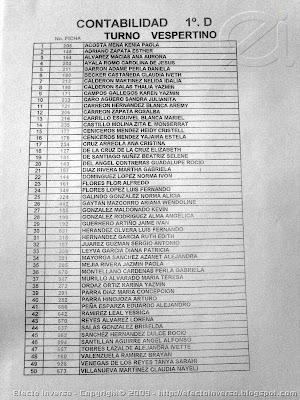 CONTABILIDAD 1º. D
TURNO VESPERTINO
No. FICHA
1 206 ACOSTA MENA KENIA PAOLA
2 ADRIANO ZAPATA ESTHER
3 164 ALVAREZ MACIAS ANA AURORA
4 AYALA ROMO CAROLINA DE JESUS
5 BARRON ADAME PERLA DANIELA
6 BECKER CASTAÑEDA CLAUDIA IVETH
7 CALDERON MARTINEZ NELIDA IDALIA
8 CALDERON SALAS THALIA YAZMIN
9 171 CAMPOS GALLEGOS KAREN YAZMIN
10 233 CARO AGÜERO SANDRA JULIANITA
11 CARREON HERNANDEZ BLANCA AREMY
12 CARREON ZAPATA ROSALBA
13 CARRILLO ESQUIVEL BLANCA MARIEL
14 CASTILLO MOLINA ZITA E. MONSERRAT
15 177 CENICEROS MENDEZ HEIDY CRISTELL
16 CENICEROS MENDEZ YAJAIRA ESTELA
17 234 CRUZ ARREOLA ANA CRISTINA
18 DE LA CRUZ DE LA CRUZ ELIZABETH
19 DE SANTIAGO NUÑEZ BEATRIZ SELENE
20 DEL ANGEL CONTRERAS GUADALUPE ROCIO
21 DIAZ RIVERA MARTHA GABRIELA
22 DOMINGUEZ LOPEZ NORMA IVON
23 FLORES FLOR ALFREDO
24 FLORES LOPEZ LUIS FERNANDO
25 GALINDO GONZALEZ NORMA ALICIA
26 GAYTAN MAZCORRO ARIANA WENDOLINE
27 GONZALEZ MALDONADO KEVIN
28 GONZALEZ RODRIGUEZ ALMA ANGELICA
29 GUERRERO ARTIÑO JAIME IVAN
30 HERANDEZ OLVERA LUIS FERNANDO
31 HERNANDEZ GARCIA RUTH EDITH
32 JUAREZ GUZMAN SERGIO ANTONIO
33 LEYVA GARCIA DIANA PATRICIA
34 MAYORGA SANCHEZ AZANET ALEJANDRA
35 MEJIA RIVERA JAZMIN PAOLA
36 MONTELLANO CARDENAS PERLA GABRIELA
37 MURILLO ALVARADO MARIA TERESA
38 ORDAZ ORTIZ KARINA YAZMIN
39 PARRA DIAZ MARIA CONCEPCION
40 PARRA HINOJOZA ARTURO
41 PEÑA ESPARZA EDUARDO ALEJANDRO
42 RAMIREZ LEAL YESSICA
43 REYES ALVAREZ LORENA
44 SALAS GONZALEZ BRISELDA
45 SANCHEZ HERNANDEZ DULCE ROCIO
46 SANTILLAN AGUIRRE ANGEL ALFONSO
47 TORRES LAZALDE ALEJANDRA IVETTE
48 VALENZUELA RAMIREZ BRAYAN
49 VENEGAS DE LOS REYES TANYA SARAHI
50 573 VILLANUEVA MARTINEZ CLAUDIA NAYELI
Efecto Inverso - Copyright © 2009 - http://efectoinverso.blogspot.com